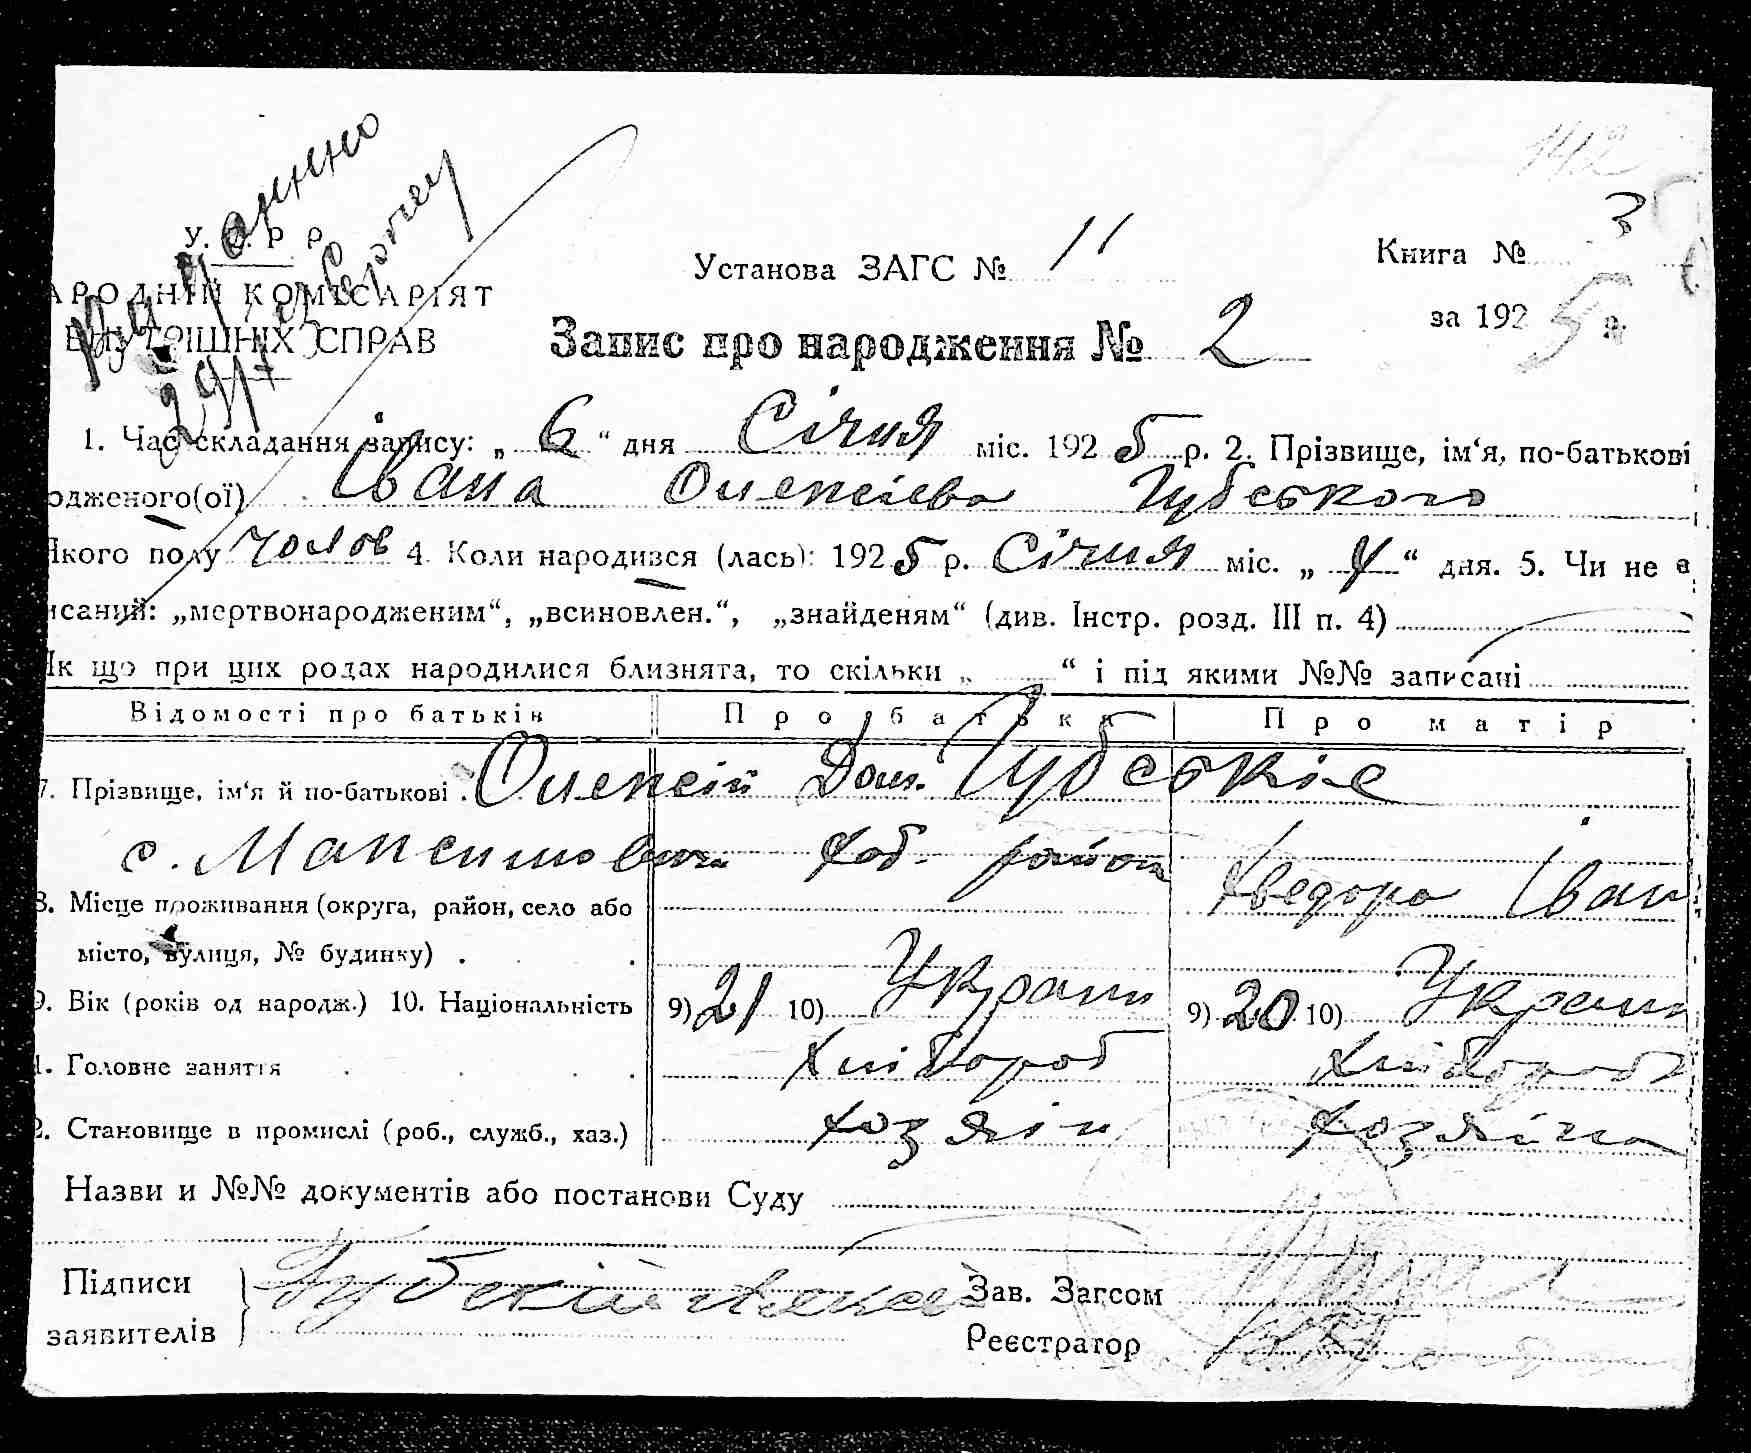 142
У. С. Р. Р.
АРОДНІЙ КОМІСАРІЯТ
ВНУТРІШНІХ СПРАВ
Установа ЗАГС № 11
Книга № 3
за 1925 р.
Запис про народження № 2
1. Час складання запису: „ 6 “ дня Січня міс. 1925 р. 2. Прізвище, ім‘я, по-батькові
одженого(ої) Івана Олексієва Губського
Якого полу чолов 4. Коли народився (лась): 1925 р. Січня міс. „ 4 “ дня. 5. Чи не з
исаний: „мертвонародженим“, „всиновлен.“, „знайденям“ (див. Інстр. розд. III п. 4)
Як що при цих родах народилися близнята, то скільки „ “ і під якими №№ записані
Відомості про батьків Про батька Про матір
7. Прізвище, ім‘я й по-батькові . Олексій Дом. Губські
с. Максимовки район
Хведора Іван
8. Місце проживання (округа, район, село або
місто, вулиця, № будинку) .
9. Вік (років од народж.) 10. Національність 9) 21 10) Украин 9) 20 10) Украин
1. Головне заняття Хлібороб Хлібороб
2. Становище в промислі (роб., служб., хаз.) Хозяін Хозяіна
Назви и №№ документів або постанови Суду
Підписи
заявителів Губский
Зав. Загсом
Реєстратор